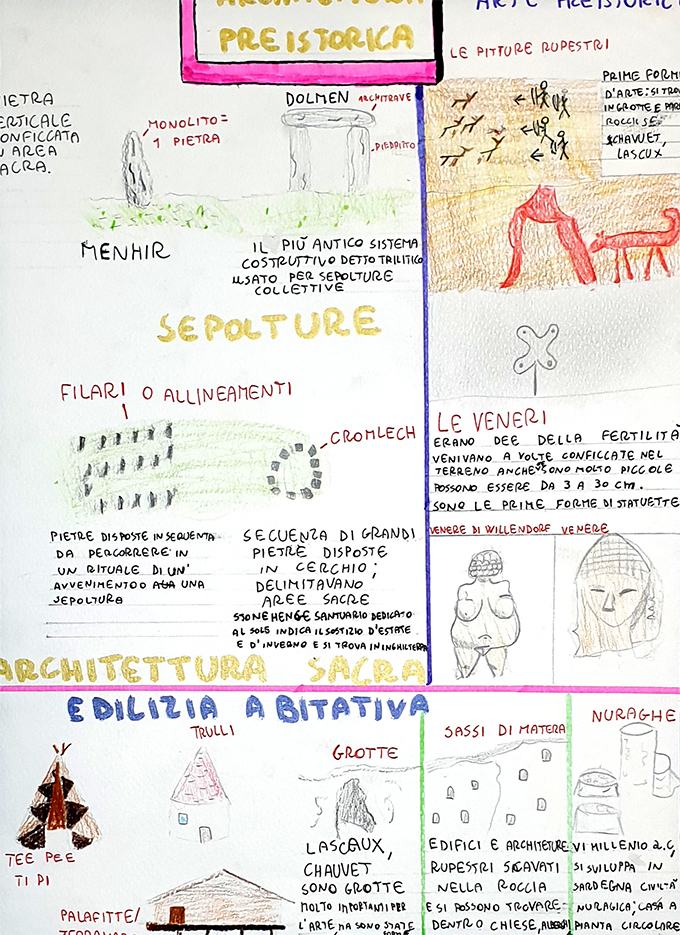 ARCHITETTURA
PREISTORICA
PIETRA
VERTICALE
CONFICCATA
IN AREA
SACRA.
MONOLITO=
1 PIETRA
MENHIR
DOLMEN
ARCHITRAVE
PIEDRITTO
IL PIÙ ANTICO SISTEMA
COSTRUTTIVO DETTO TRILITICO
USATO PER SEPOLTURE
COLLETTIVE
SEPOLTURE
FILARI O ALLINEAMENTI
CROMLECH
PIETRE DISPOSTE IN SEQUENZA
DA PERCORRERE IN
UN RITUALE DI UN'
AVVENIMENTO O UNA
SEPOLTURA
SECUENZA DI GRANDI
PIETRE DISPOSTE
IN CERCHIO;
DELIMITAVANO
AREE SACRE
STONEHENGE SANTUARIO DEDICATO
AL SOLE INDICA IL SOSTIZIO D'ESTATE
E D'INVERNO E SI TROVA IN INGHILTERRA
ARCHITETTURA SACRA
ARTE PREISTORIC
LE PITTURE RUPESTRI
PRIME FORM
D'ARTE: SI TRO
IN GROTTE E PAR
ROCCISE.
CHAVUET,
LASCUX
LE VENERI
ERANO DEE DELLA FERTILITÀ
VENIVANO A VOLTE CONFICCATE NEL
TERRENO ANCHE SE SONO MOLTO PICCOLE
POSSONO ESSERE DA 3 A 30 cm.
SONO LE PRIME FORME DI STATUETTE
VENERE DI WILLENDORF VENERE
EDILIZIA ABITATIVA
TEE PEE
TI PI
TRULLI
PALAFITTE/
GROTTE
LASCEAUX,
CHAUVET
SONO GROTTE
MOLTO IMPORTANTI PER
L'ARTE, MA SONO STATE
SASSI DI MATERA
EDIFICI E ARCHITETURE
RUPESTRI SCAVATI
NELLA ROCCIA
E SI POSSONO TROVARE
DENTRO CHIESE, ALBERGI
NURAGHE
VI MILLENIO a.C,
SI SVILUPPA IN
SARDEGNA CIVILTÀ
NURAGICA; CASA A
PIANTA CIRCOLARE